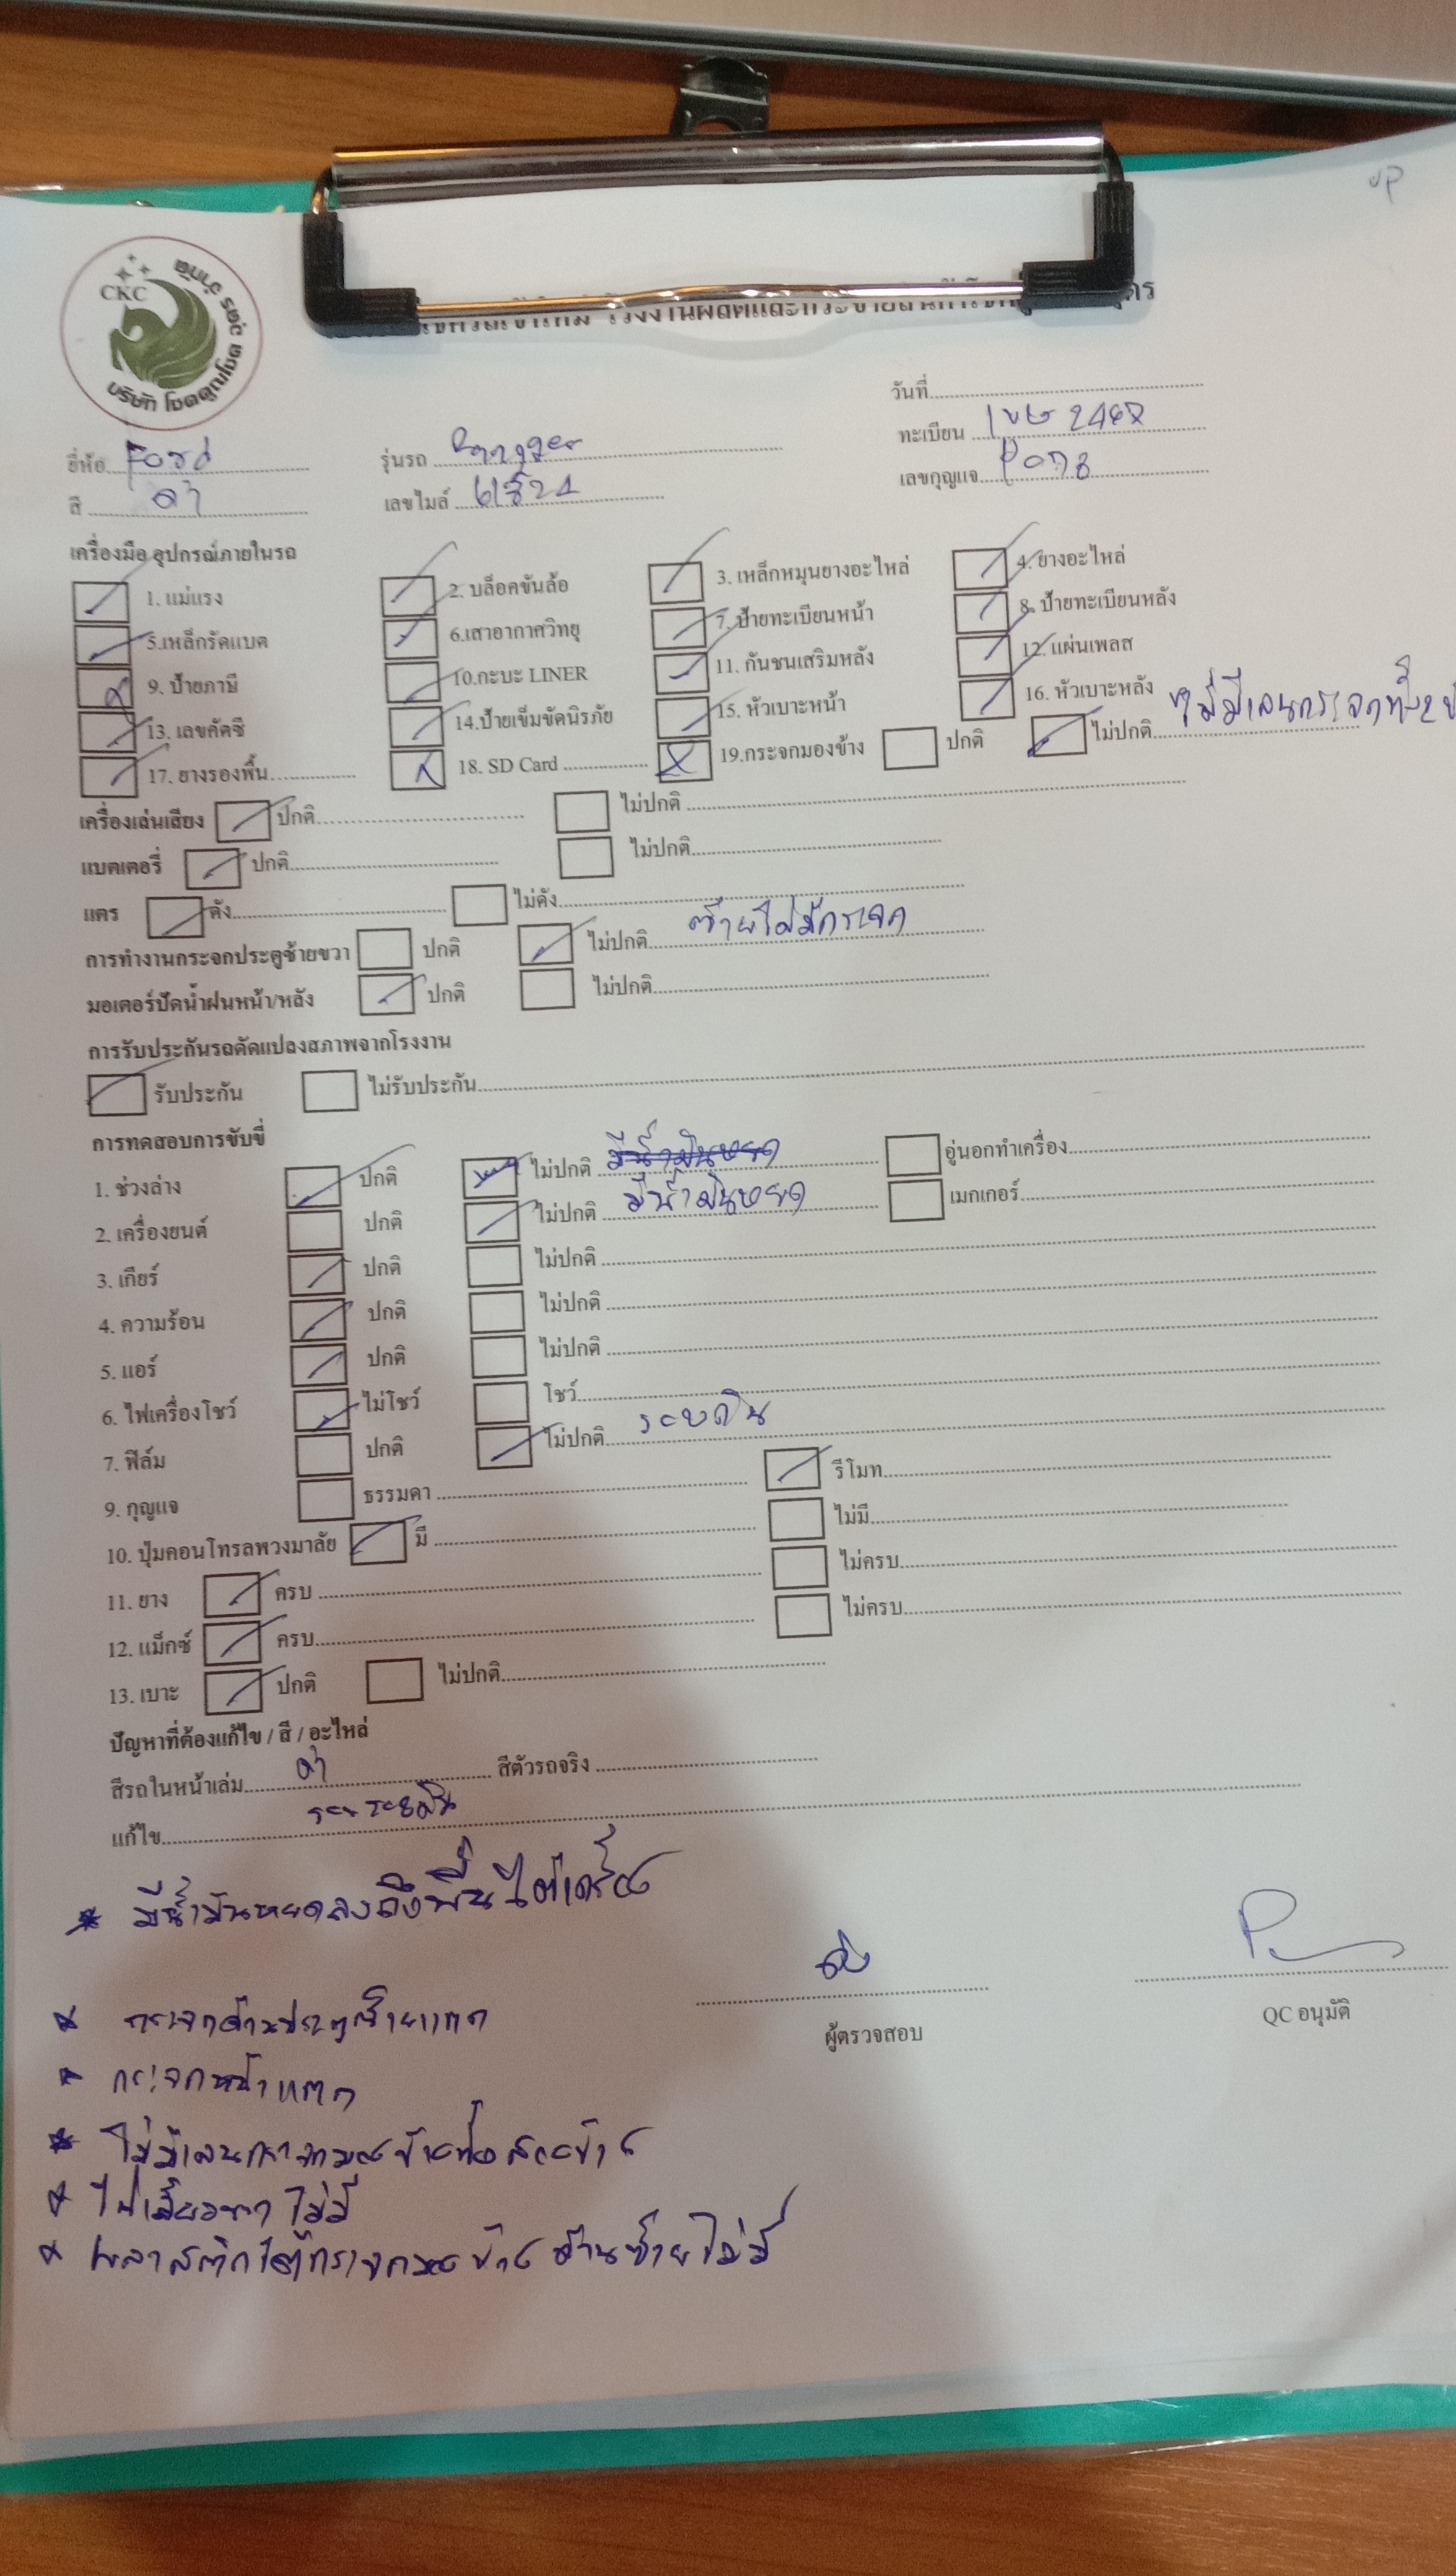 CKC
บริษัท โชคคูณโชค คาร์ จำกัด
วันที่
ยี่ห้อ Ford รุ่นรถ Rangger ทะเบียน
สี ดำ เลขไมล์ เลขกุญแจ P073
เครื่องมือ อุปกรณ์ภายในรถ
1. แม่แรง 2. บล็อคขันล้อ 3. เหล็กหมุนยางอะไหล่ 4. ยางอะไหล่
5.เหล็กรัดแบต 6.เสาอากาศวิทยุ 7. ป้ายทะเบียนหน้า 8. ป้ายทะเบียนหลัง
9. ป้ายภาษี 10.กะบะ LINER 11. กันชนเสริมหลัง 12. แผ่นเพลส
13. เลขคัตซี 14.ป้ายเข็มขัดนิรภัย 15. หัวเบาะหน้า 16. หัวเบาะหลัง
17. ยางรองพื้น 18. SD Card 19.กระจกมองข้าง ปกติ ไม่ปกติ ไม่มีเลนกระจกทั้ง2
เครื่องเล่นเสียง ปกติ ไม่ปกติ
แบตเตอรี่ ปกติ ไม่ปกติ
แตร ดัง ไม่ดัง
การทำงานกระจกประตูซ้ายขวา ปกติ ไม่ปกติ ซ้ายไม่มีกระจก
มอเตอร์ปัดน้ำฝนหน้า/หลัง ปกติ ไม่ปกติ
การรับประกันรถดัดแปลงสภาพจากโรงงาน
รับประกัน ไม่รับประกัน
การทดสอบการขับขี่
1. ช่วงล่าง ปกติ ไม่ปกติ มีน้ำมันหยด อู่นอกทำเครื่อง
2. เครื่องยนต์ ปกติ ไม่ปกติ มีน้ำมันหยด เมกเกอร์
3. เกียร์ ปกติ ไม่ปกติ
4. ความร้อน ปกติ ไม่ปกติ
5. แอร์ ปกติ ไม่ปกติ
6. ไฟเครื่องโชว์ ไม่โชว์ โชว์
7. ฟิล์ม ปกติ ไม่ปกติ
9. กุญแจ ธรรมดา รีโมท
10. ปุ่มคอนโทรลพวงมาลัย มี ไม่มี
11. ยาง ครบ ไม่ครบ
12. แม็กซ์ ครบ ไม่ครบ
13. เบาะ ปกติ ไม่ปกติ
ปัญหาที่ต้องแก้ไข / สี / อะไหล่
สีรถในหน้าเล่ม ดำ สีตัวรถจริง
แก้ไข
* มีน้ำมันหยดลงถึงพื้น
* กระจกด้านประตูซ้ายแตก
* กระจกหน้าแตก
* ไม่มีเลนกระจกมองข้างทั้งสองข้าง
* ไม่มี
* พลาสติกใต้กระจกมองข้าง ด้านซ้ายไม่มี
ผู้ตรวจสอบ
QC อนุมัติ